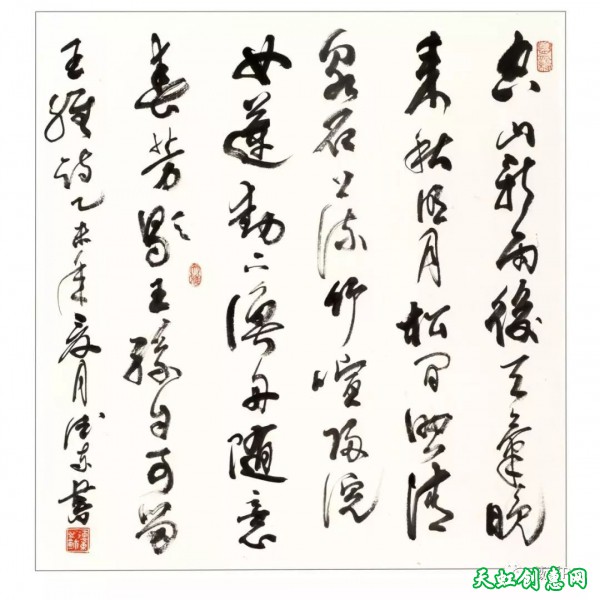 空山新雨後天氣晚
来秋明月松间照清
泉石上流竹喧归浣
女莲動下漁舟随意
春芳歇王孫自可留
王维诗乙未年夏月 书
天虹创意网